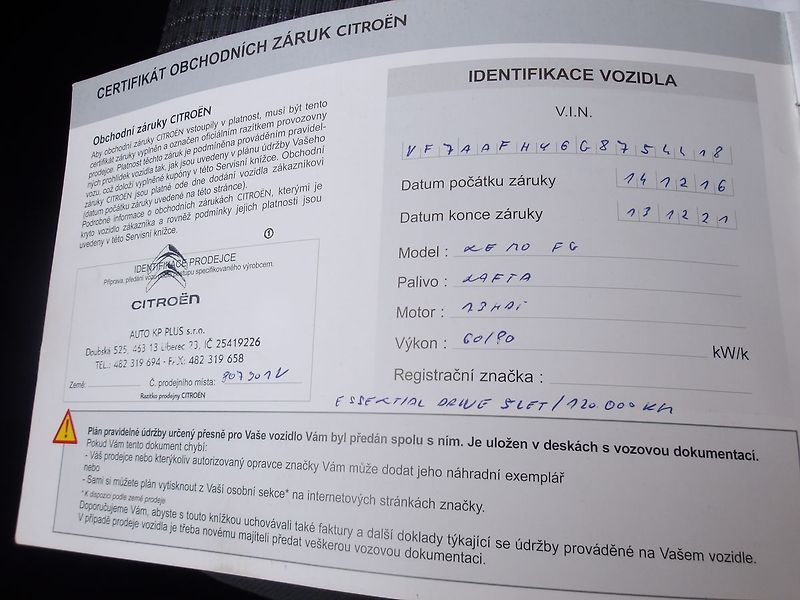 CERTIFIKÁT OBCHODNÍCH ZÁRUK CITROËN
Obchodní záruky CITROËN
Aby obchodní záruky CITROËN vstoupily v platnost, musí být tento
certifikát záruky vyplněn a označen oficiálním razítkem provozovny
prodejce. Platnost těchto záruk je podmíněna prováděním pravidel-
ných prohlídek vozidla tak, jak jsou uvedeny v plánu údržby Vašeho
vozu, což doloží vyplněné kupóny v této Servisní knížce. Obchodní
záruky CITROËN jsou platné ode dne dodání vozidla zákazníkovi
(datum počátku záruky uvedené na této stránce).
Podrobné informace o obchodních zárukách CITROËN, kterými je
kryto vozidlo zákazníka a rovněž podmínky jejich platnosti jsou
uvedeny v této Servisní knížce.
IDENTIFIKACE PRODEJCE
Příprava, předání vozu dle postupu specifikovaného výrobcem.
CITROËN
AUTO KP PLUS s.r.o.
Doubská 525, 463 13 Liberec 23, IČ 25419226
TEL.: 482 319 694 - FAX: 482 319 658
Země:
Č. prodejního místa: 907901V
Razítko prodejny CITROËN
IDENTIFIKACE VOZIDLA
V.I.N.
VF7AAFHY6G8754418
Datum počátku záruky 141216
Datum konce záruky 131221
Model : NEMO FG
Palivo : NAFTA
Motor : 13HDi
Výkon : 60/80 kW/k
Registrační značka :
ESSENTIAL DRIVE 5LET/120.000KM
Plán pravidelné údržby určený přesně pro Vaše vozidlo Vám byl předán spolu s ním. Je uložen v deskách s vozovou dokumentací.
Pokud Vám tento dokument chybí:
- Váš prodejce nebo kterýkoliv autorizovaný opravce značky Vám může dodat jeho náhradní exemplář
nebo
- Sami si můžete plán vytisknout z Vaší osobní sekce* na internetových stránkách značky.
*K dispozici podle země prodeje
Doporučujeme Vám, abyste s touto knížkou uchovávali také faktury a další doklady týkající se údržby prováděné na Vašem vozidle.
V případě prodeje vozidla je třeba novému majiteli předat veškerou vozovou dokumentaci.